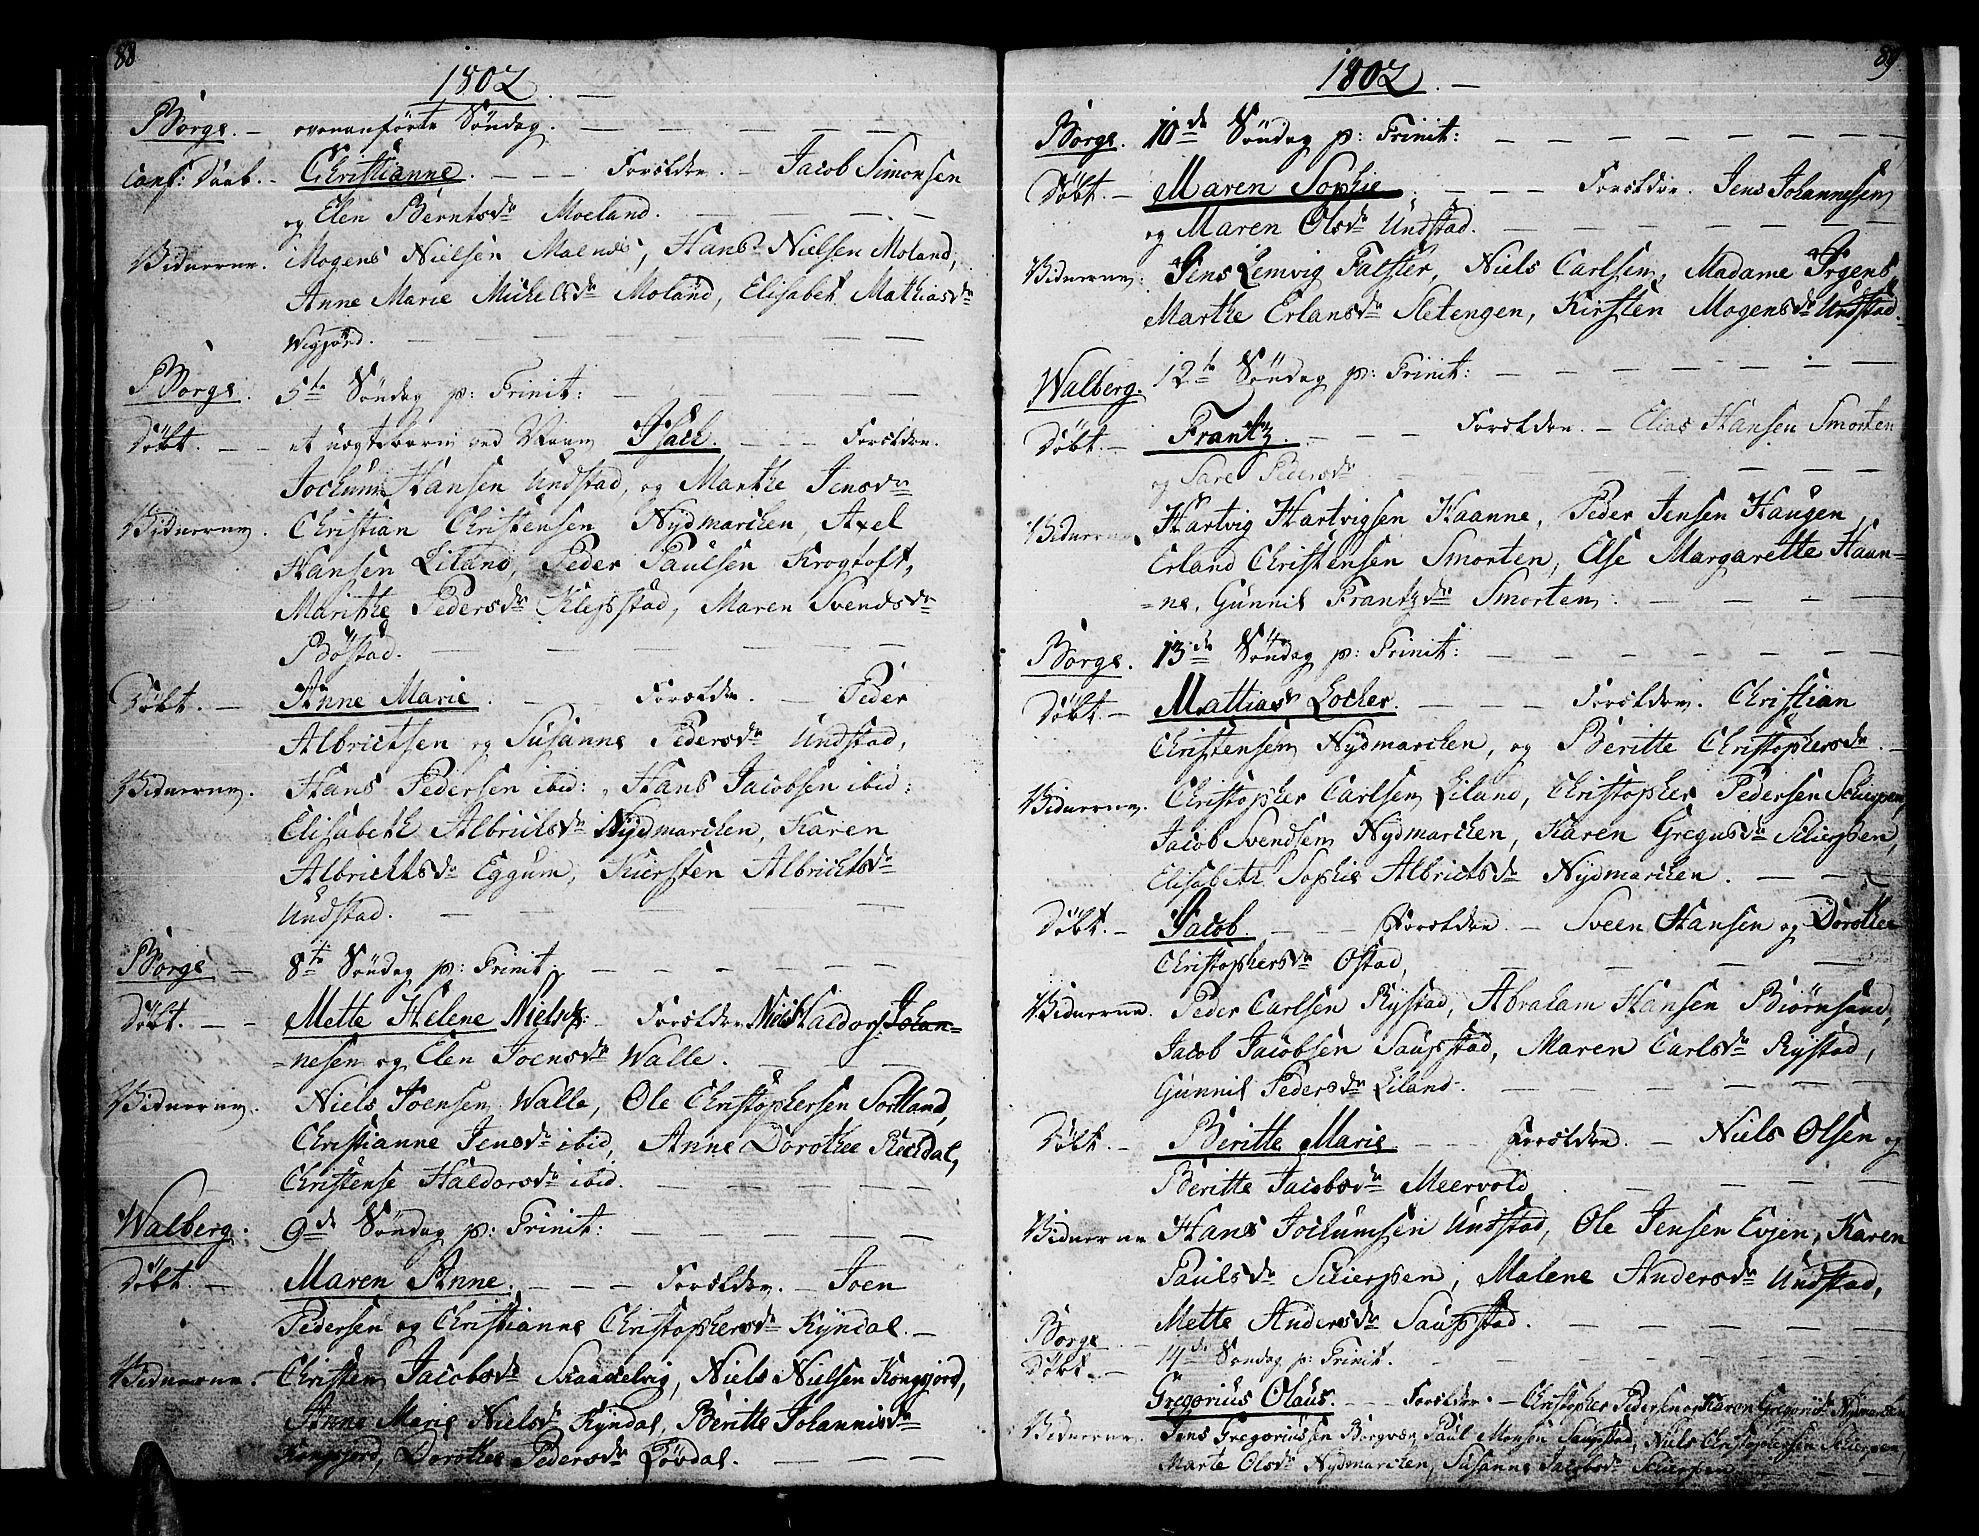 88
1802.
Borge. - ovenanförte Söndag.
Conf: Daab. - Christianne. Forældre. - Jacob Simonsen
og Elen Berntsdr Moeland.
Vidnerne. Mogens Nielsen Malnes, Hans Nielsen Moland,
Anne Marie Michelsdr Moland, Elisabet Mathiasdr
Wigjord.
Borge. 5te Söndag p: Trinit:
Döbt. - et uægtebarn ved Navn Isach. Forældre.
Jochum Hansen Undstad, og Marthe Jensdr
Vidnerne. Christian Christensen Nydmarchen, Axel
Hansen Liland, Peder Paulsen Krogtoft,
Marithe Pedersdr Klepstad, Maren Svendsdr
Böstad.
Döbt. - Anne Marie. Forældre. - Peder
Albrictsen og Susanne Pedersdr Undstad,
Vidnerne. Hans Pedersen ibid:, Hans Jacobsen ibid:
Elisabeth Albrictsdr Nydmarchen, Karen
Albrichtsdr Eggum, Kiersten Albrichtsdr
Undstad.
Borge - 8te Söndag p: Trinit:
Döbt. - Mette Helene Nielsd: Forældre Niels Haldors Johan=
=nesen og Elen Joensdr Walle.
Vidnerne. Niels Joensen Walle, Ole Christophersen Sortland,
Christianne Jensdr ibid, Anne Dorothee Reisdal,
Christense Haldorsdr ibid.
Walberg. 9de Söndag p: Trinit:
Döbt. - Maren Anne. Forældre. - Joen
Pedersen og Christianne Christophersdr Kyndal. -
Vidnerne. Christen Jacobsdr Skaadelvig, Niels Nielsen Kongsjord,
Anne Marie Nielsdr Kyndal, Beritte Johannisdr
Kongsjord, Dorothee Pedersdr Lövdal.
89
1802. -
Borge. 10de Söndag p: Trinit:
Döbt. - Maren Sophie. Forældre. Jens Johannesen
og Maren Olsdr Undstad.
Vidnerne. Jens Lemvig Falster, Niels Carlsen, Madame Irgens,
Marthe Erlansdr Sletengen, Kirsten Mogensdr Undstad.
Walberg. 12te Söndag p: Trinit:
Döbt. - Frantz. Forældre. - Elias Hansen Smorten
og Sare Pedersdr
Vidnerne. Hartvig Hartvigsen Haanne, Peder Jensen Haugen,
Erland Christensen Smorten, Else Margarette Haan=
=ne, Gunnil Frantzdr Smorten.
Borge. 13de Söndag p: Trinit:
Döbt. - Mattias Locher. Forældre. Christian
Christensen Nydmarchen, og Beritte Christophersdr.
Vidnerne. Christopher Carlsen Liland, Christopher Pedersen Schierpen,
Jacob Svendsen Nydmarchen, Karen Gregusdr Schierpen,
Elisabeth Sophie Albrictsdr Nydmarchen.
Döbt. - Jacob. Forældre. - Sveen Hansen og Dorothee
Christophersdr Ostad,
Vidnerne. Peder Carlsen Rystad, Abraham Hansen Biörnsand,
Jacob Jacobsen Saupstad, Maren Carlsdr Rystad,
Gunnil Pedersdr Liland.
Döbt. - Beritte Marie. Forældre. - Niels Olsen og
Beritte Jacobsdr Meervold
Vidnerne Hans Jochumsen Undstad, Ole Jensen Evjen, Karen
Paulsdr Schierpen, Malene Andersdr Undstad,
Mette Andersdr Saupstad.
Borge. 14de Söndag p: Trinit.
Döbt. -
Gregorius Olaus. Forældre. - Christopher Pedersen og Karen Gregorisdr Nydmarchen
Vidnerne. Jens Gregoriussen Borgvær, Paul Monsen Saupstad, Niels Christophersen Schierpen,
Marte Olsdr Nydmarchen, Susanne Jacobsdr Schierpen